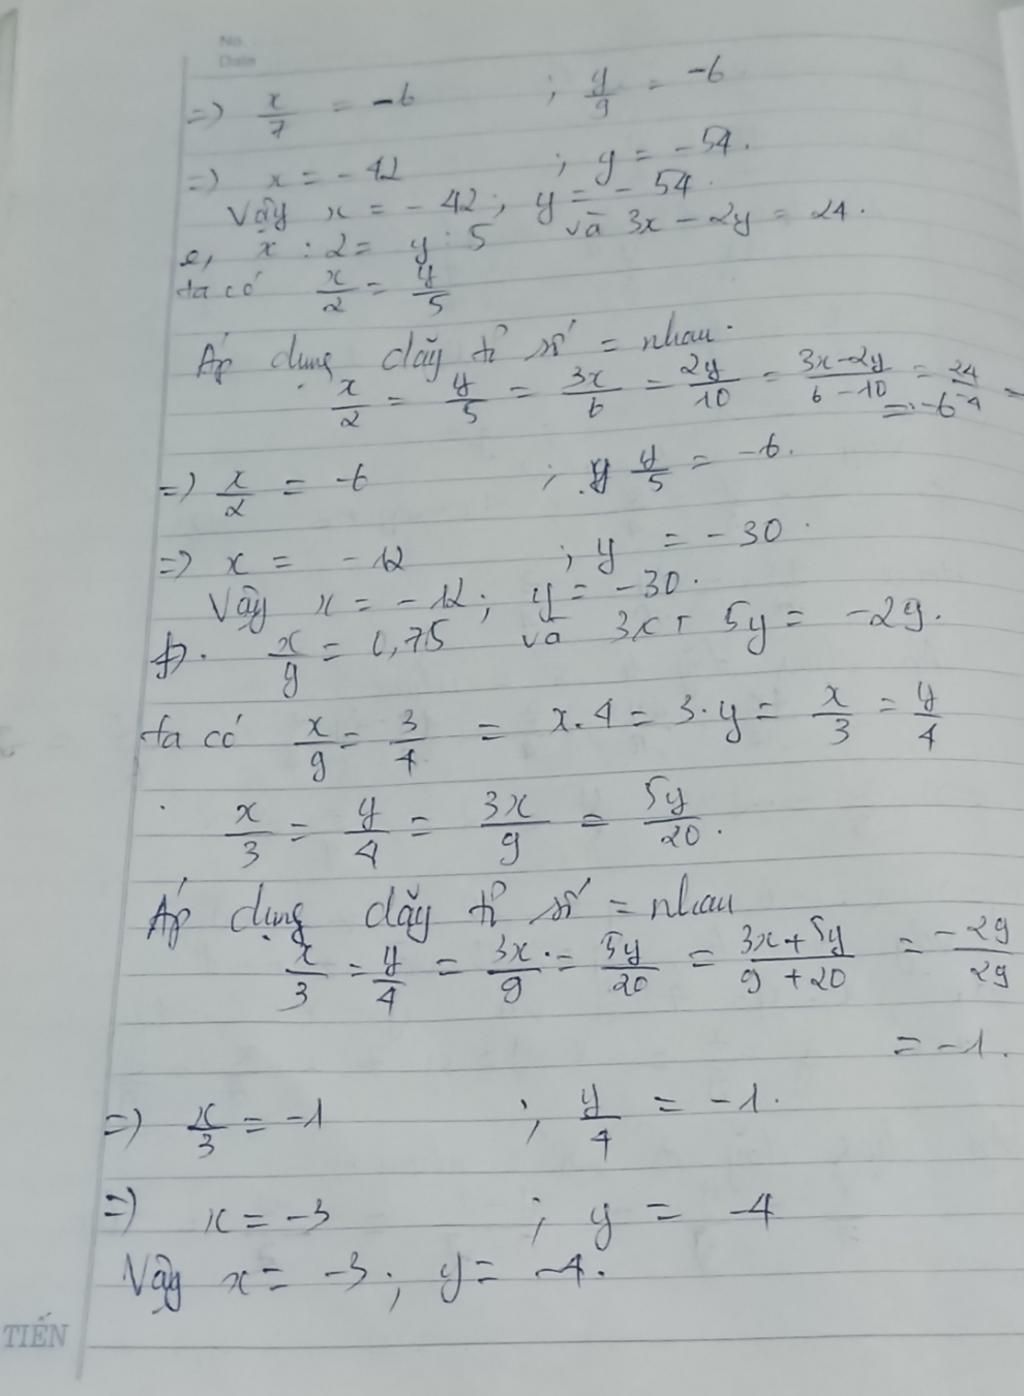 No.
Date
=> x/7 = -6 ; y/9 = -6
=> x = - 42 ; y = - 54.
Vậy x = - 42 ; y = - 54.
e, x : 2 = y : 5 và 3x - 2y = 24.
ta có x/2 = y/5
Áp dụng dãy tỉ số = nhau.
x/2 = y/5 = 3x/6 = 2y/10 = 3x-2y/6-10 = 24/-4 =
= -6
=> x/2 = -6 ; y/5 = -6.
=> x = -12 ; y = -30.
Vậy x = -12 ; y = -30.
f). x/y = 0,75 và 3x + 5y = -29.
ta có x/y = 3/4 = x.4 = 3.y = x/3 = y/4
x/3 = y/4 = 3x/9 = 5y/20.
Áp dụng dãy tỉ số = nhau
x/3 = y/4 = 3x/9 = 5y/20 = 3x+5y/9+20 = -29/29
= -1.
=> x/3 = -1 ; y/4 = -1.
=> x = -3 ; y = -4
Vậy x = -3 ; y = -4.
TIẾN